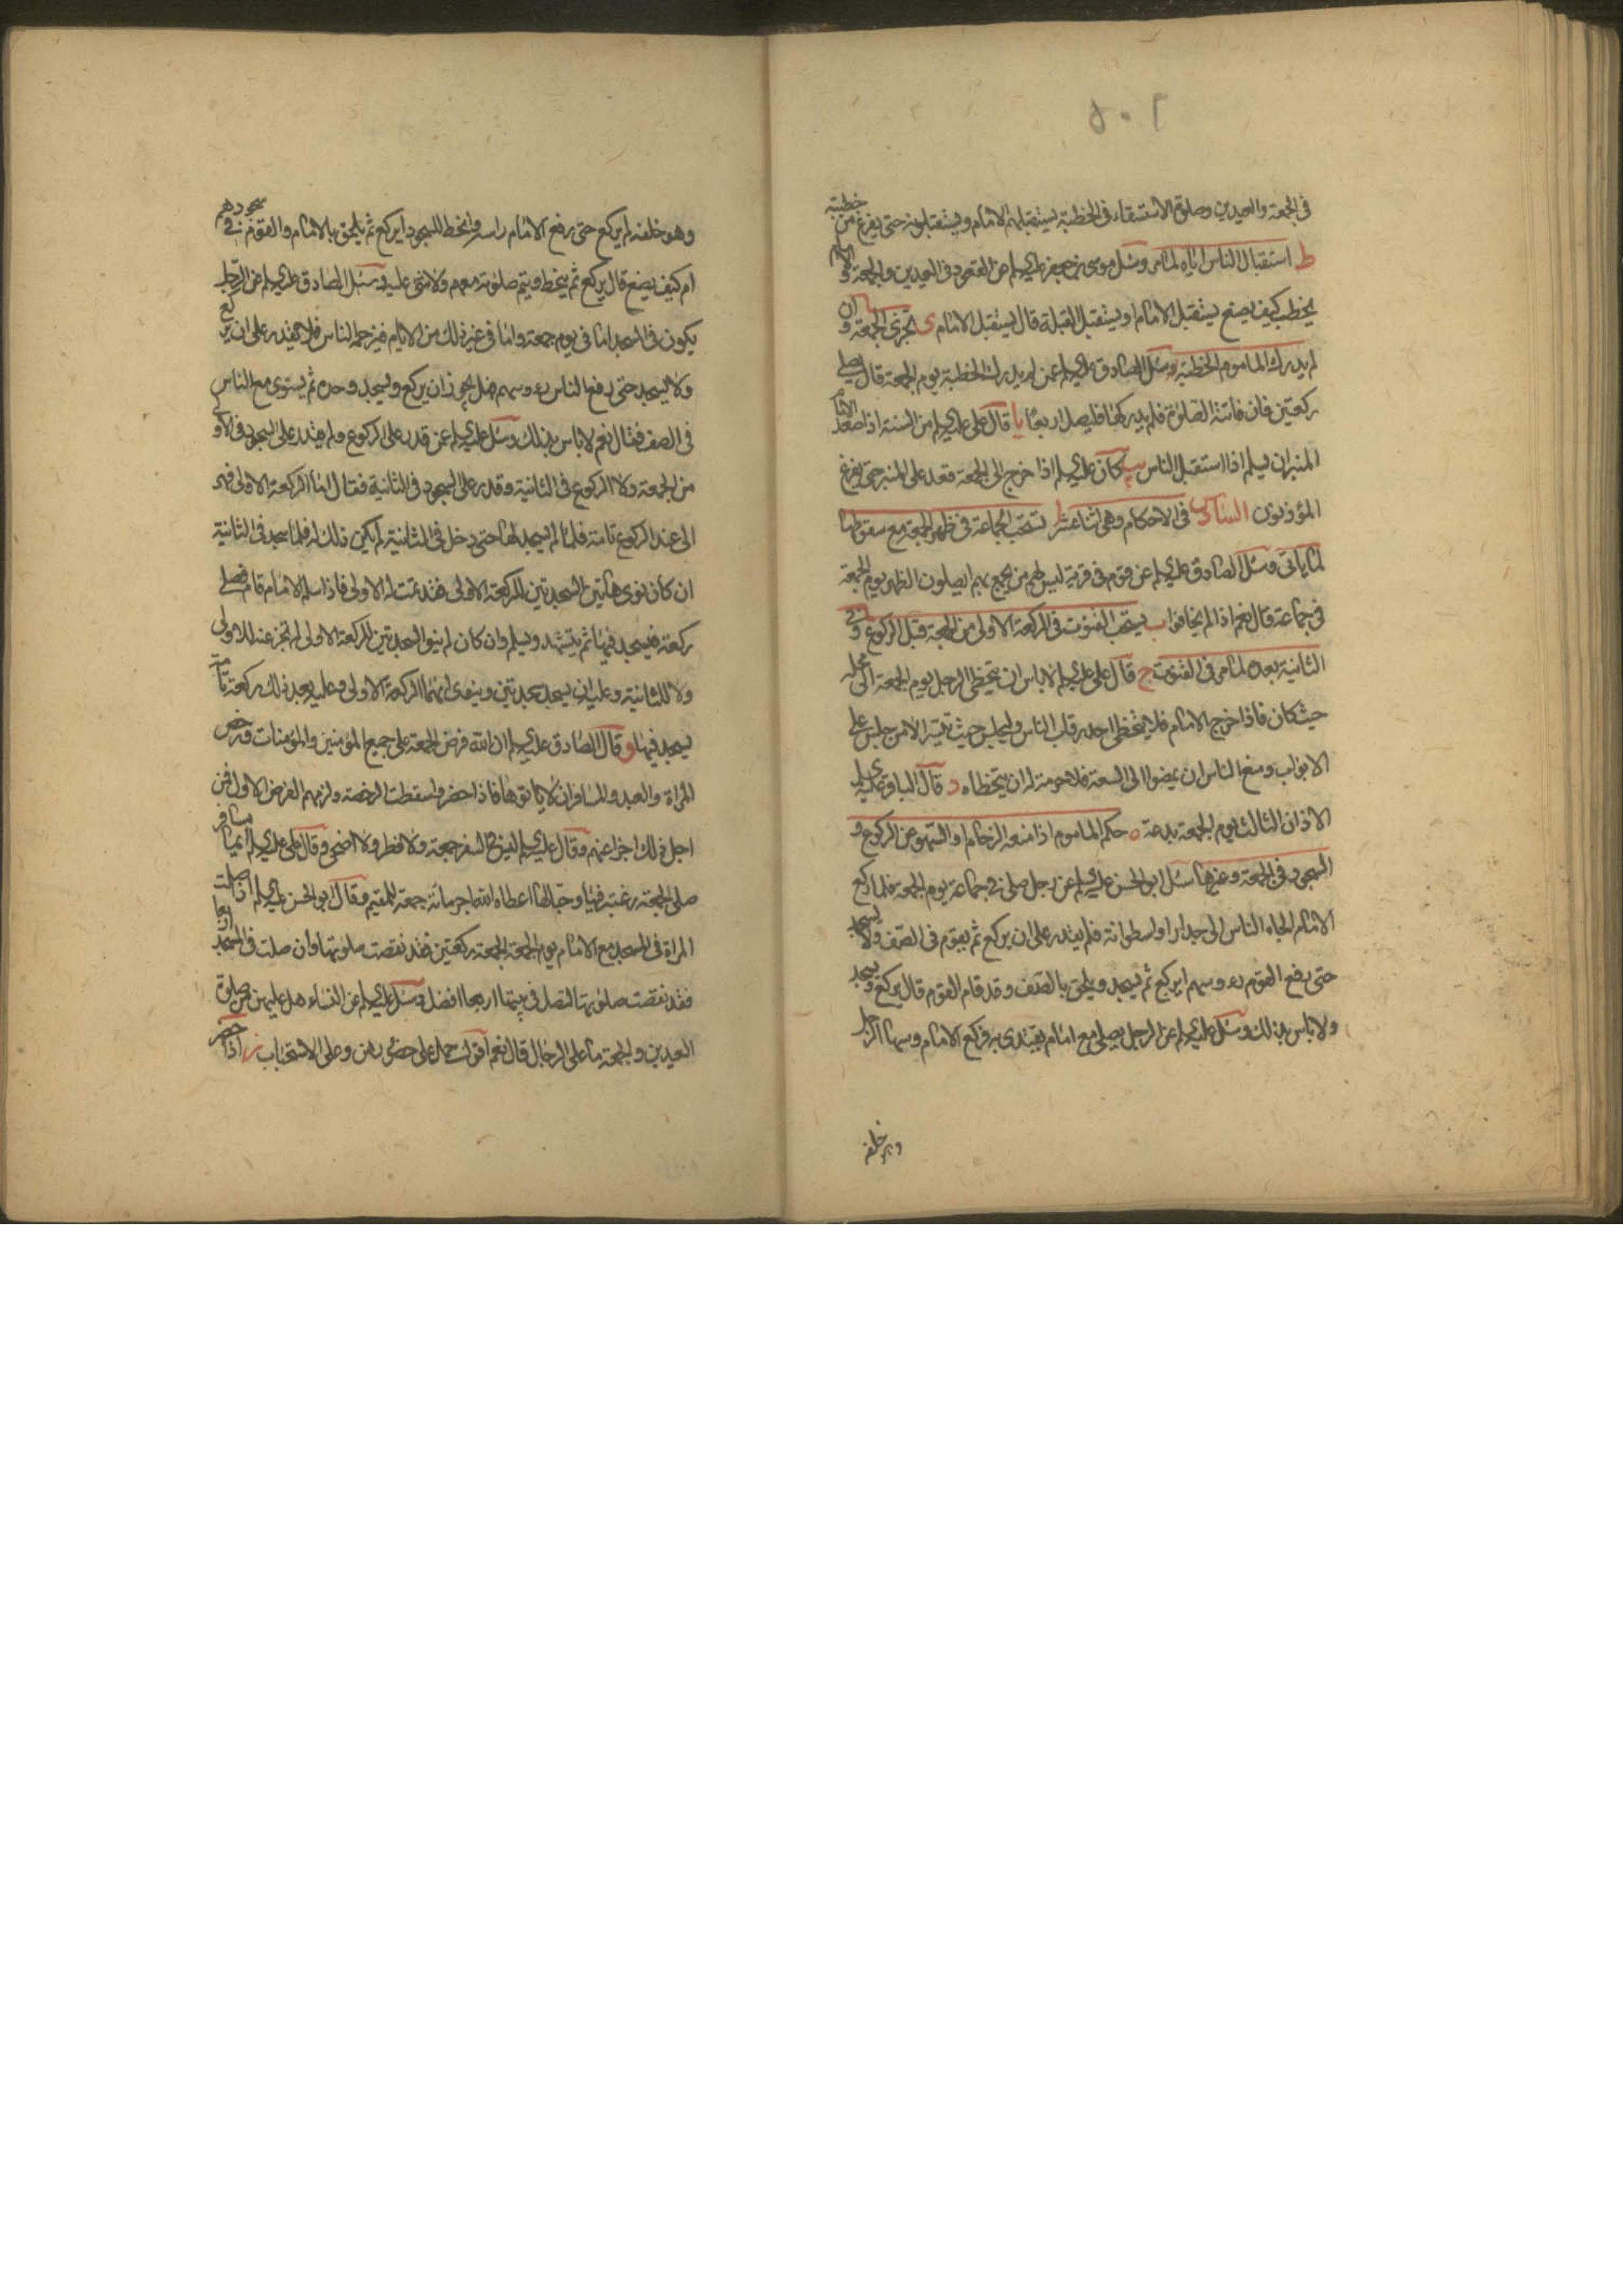 ٥٠٢
في الجمعة والعيدين وصلوة الاستسقاء في الخطبة يستقبلهم الامام ويستقبلونه حتى يفرغ من خطبته
ط استقبال الناس اياه لما مر وسئل موسى بن جعفر عليه السلم عن القعود في العيدين والجمعة والامام
يخطب كيف يصنع يستقبل الامام او يستقبل القبلة قال يستقبل الامام ى تجزئ الجمعة وان
لم يدرك الماموم الخطبة وسئل الصادق عليه السلم عمن لم يدرك الخطبة يوم الجمعة قال يصلي
ركعتين فان فاتته الصلوة فلم يدركها فليصل اربعا يا قال علي عليه السلم من السنة اذا صعد الامام
المنبر ان يسلم اذا استقبل الناس يب كان عليه السلم اذا خرج الى الجمعة قعد على المنبر حتى يفرغ
المؤذنون السادس في الاحكام وهي اثنا عشر ا تستحب الجماعة في ظهر الجمعة مع سقوطها
لما ياتي وسئل الصادق عليه السلم عن قوم في قرية ليس لهم من يجمع بهم ايصلون الظهر يوم الجمعة
في جماعة قال نعم اذا لم يخافوا ب يستحب القنوت في الركعة الاولى من الجمعة قبل الركوع وفي
الثانية بعده لما مر في القنوت ج قال علي عليه السلم لا باس ان يتخطى الرجل يوم الجمعة الى مجلسه
حيث كان فاذا خرج الامام فلا يتخطى احد رقاب الناس وليجلس حيث تيسر الا من جلس على
الابواب ومنع الناس ان يمضوا الى السعة فلا حرمة له ان يتخطاه د قال الباقر عليه السلم
الاذان الثالث يوم الجمعة بدعة ه حكم الماموم اذا منعه الزحام او السهو عن الركوع و
السجود في الجمعة وغيرها سئل ابو الحسن عليه السلم عن رجل صلى في جماعة يوم الجمعة فلما ركع
الامام الجاه الناس الى جدار او اسطوانة فلم يقدر على ان يركع ثم يقوم في الصف ولا يسجد
حتى رفع القوم رءوسهم ايركع ثم يسجد ويلحق بالصف وقد قام القوم قال يركع ويسجد
ولا باس بذلك وسئل عليه السلم عن الرجل يصلي مع امام يقتدي به فركع الامام وسها الرجل
وهو خلفه
وهو خلفه لم يركع حتى رفع الامام راسه وانحط للسجود ايركع ثم يلحق بالامام والقوم في سجودهم
ام كيف يصنع قال يركع ثم ينحط ويتم صلوته معهم ولا شئ عليه وسئل الصادق عليه السلم عن الرجل
يكون في المسجد اما في يوم جمعة واما في غير ذلك من الايام فيزحمه الناس فلا يقدر على ان يركع
ولا يسجد حتى رفع الناس رءوسهم فهل يجوز ان يركع ويسجد وحده ثم يستوي مع الناس
في الصف فقال نعم لا باس بذلك وسئل عليه السلم عمن قدر على الركوع ولم يقدر على السجود في الاولى
من الجمعة ولا الركوع في الثانية وقدر على السجود في الثانية فقال اما الركعة الاولى فهي
الى عند الركوع تامة فلما لم يسجد لها حتى دخل في الثانية لم يكن ذلك له فلما سجد في الثانية
ان كان نوى هاتين السجدتين للركعة الاولى فقد تمت له الاولى فاذا سلم الامام قام فصلى
ركعة فيسجد فيها ثم يتشهد ويسلم وان كان لم ينو السجدتين للركعة الاولى لم تجز عنه للاولى
ولا للثانية وعليه ان يسجد سجدتين وينوي انهما الركعة الاولى وعليه بعد ذلك ركعة تامة
يسجد فيها و قال الصادق عليه السلم ان الله فرض الجمعة على جميع المؤمنين والمؤمنات ورخص
للمراة والعبد والمسافر ان لا ياتوها فاذا حضروا سقطت الرخصة ولزمهم الفرض الاول فمن
اجل ذلك اجزا عنهم وقال عليه السلم ليس في السفر جمعة ولا فطر ولا اضحى وقال علي عليه السلم ايما مسافر
صلى الجمعة رغبة فيها وحبا لها اعطاه الله اجر مائة جمعة للمقيم وقال ابو الحسن عليه السلم اذا صلت
المراة في المسجد مع الامام يوم الجمعة الجمعة ركعتين فقد نقصت صلوتها وان صلت في المسجد اربعا
فقد نقصت صلوتها لتصل في بيتها اربعا افضل وسئل عليه السلم عن النساء هل عليهن من صلوة
العيدين والجمعة ما على الرجال قال نعم اقول حمل على حضورهن وعلى الاستحباب ز اذا حضر